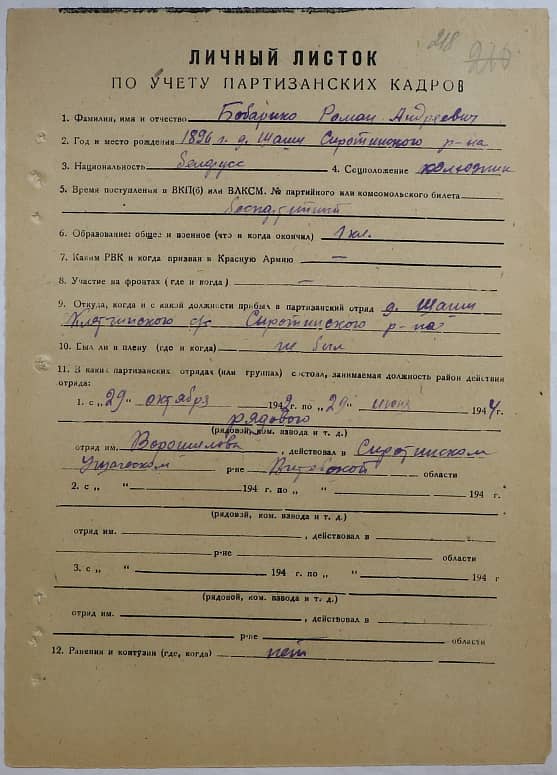 218
ЛИЧНЫЙ ЛИСТОК
ПО УЧЕТУ ПАРТИЗАНСКИХ КАДРОВ
1. Фамилия, имя и отчество Роман Андреевич
2. Год и место рождения 1896 г. д. Шащи Сиротинского р-на
3. Национальность белорусс 4. Соцположение колхозник
5. Время поступления в ВКП(б) или ВЛКСМ. № партийного или комсомольского билета
беспартийный
6. Образование: общее и военное (что и когда окончил) 1 кл.
7. Каким РВК и когда призван в Красную Армию —
8. Участие на фронтах (где и когда) —
9. Откуда, когда и с какой должности прибыл в партизанский отряд д. Шащи
с/с Сиротинского р-на
10. Был ли в плену (где и когда) не был
11. В каких партизанских отрядах (или группах) состоял, занимаемая должность район действия
отряда:
1. с „29“ октября 1942 г. по „29“ июня 1944 г.
рядового
(рядовой, ком. взвода и т. д.)
отряд им. Ворошилова, действовал в Сиротинском
р-не Витебской области
2. с „ “ 194 г. по „ “ 194 г.
(рядовой, ком. взвода и т. д.)
отряд им. , действовал в
р-не области
3. с „ “ 194 г. по „ “ 194 г
(рядовой, ком. взвода и т. д.)
отряд им. , действовал в
р-не области
12. Ранения и контузии (где, когда) нет